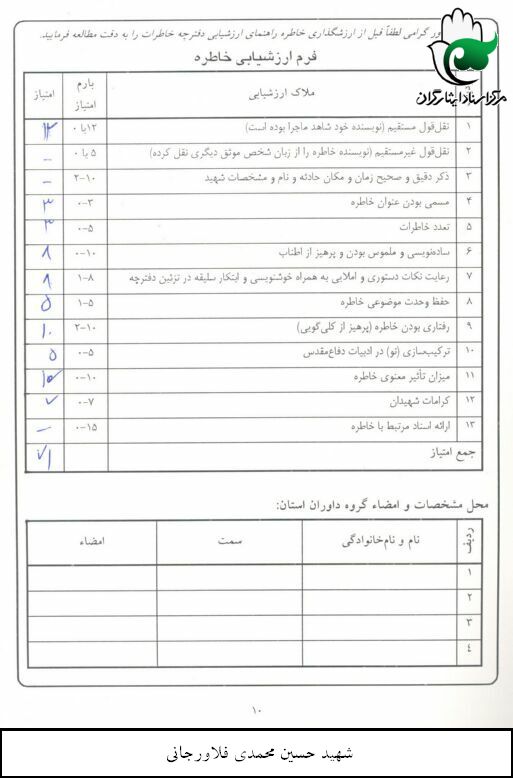 ور گرامی لطفاً قبل از ارزشگذاری خاطره راهنمای ارزشیابی دفترچه خاطرات را به دقت مطالعه فرمایید.
مرکز اسناد ایثارگران
فرم ارزشیابی خاطره
ملاک ارزشیابی بارم امتیاز امتیاز
۱ نقل‌قول مستقیم (نویسنده خود شاهد ماجرا بوده است) ۱۲ یا ۰ ۱۲
۲ نقل‌قول غیرمستقیم (نویسنده خاطره را از زبان شخص موثق دیگری نقل کرده) ۵ یا ۰ –
۳ ذکر دقیق و صحیح زمان و مکان حادثه و نام و مشخصات شهید ۲-۱۰ –
۴ مسمی بودن عنوان خاطره ۰-۳ ۳
۵ تعدد خاطرات ۰-۵ ۳
۶ ساده‌نویسی و ملموس بودن و پرهیز از اطناب ۰-۱۰ ۸
۷ رعایت نکات دستوری و املایی به همراه خوشنویسی و ابتکار سلیقه در تزئین دفترچه ۱-۸ ۸
۸ حفظ وحدت موضوعی خاطره ۱-۵ ۵
۹ رفتاری بودن خاطره (پرهیز از کلی‌گویی) ۲-۱۰ ۱۰
۱۰ ترکیب‌سازی (نو) در ادبیات دفاع‌مقدس ۰-۵ ۵
۱۱ میزان تأثیر معنوی خاطره ۰-۱۰ ۱۰
۱۲ کرامات شهیدان ۰-۷ ۷
۱۳ ارائه اسناد مرتبط با خاطره ۰-۱۵ –
جمع امتیاز ۷۱
محل مشخصات و امضاء گروه داوران استان:
ردیف نام و نام‌خانوادگی سمت امضاء
۱
۲
۳
۴
۱۰
شهید حسین محمدی فلاورجانی